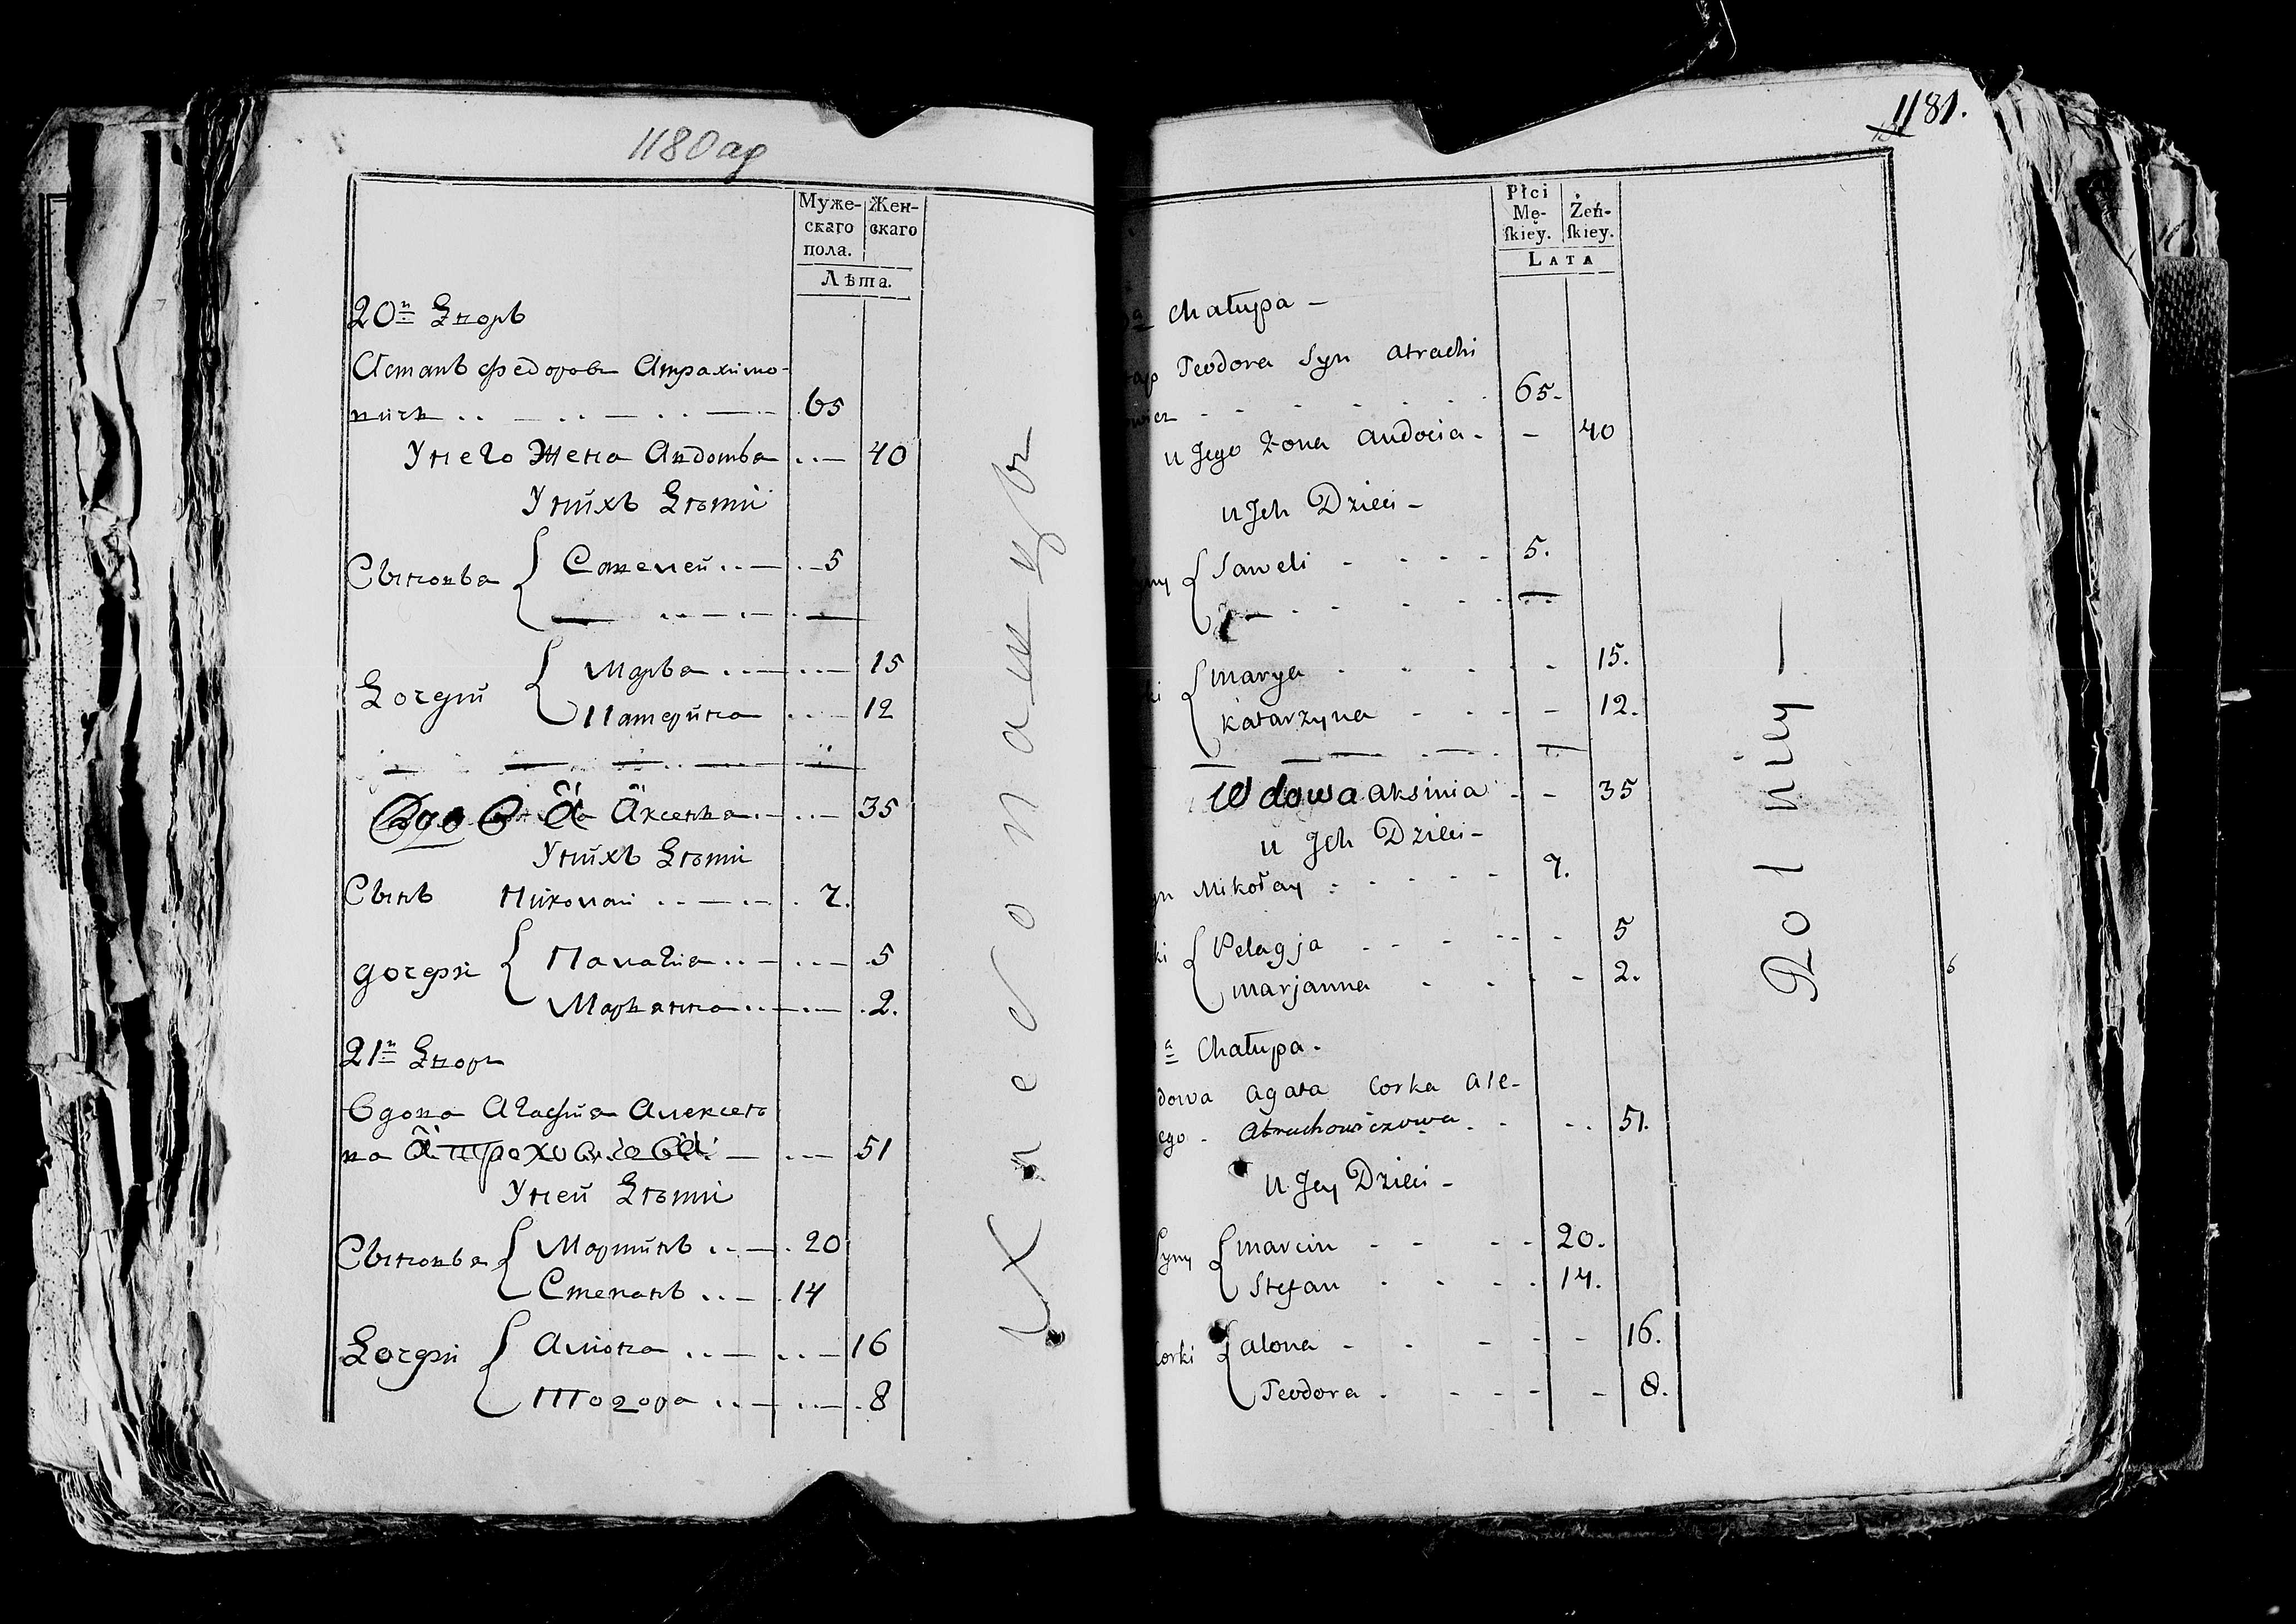 1180ад
Муже- Жен-
скаго скаго
пола.
Лѣта.
20й Дворъ
Астапъ Федоровъ Атрахимо-
вичъ 65
У него жена Авдотья 40
У нихъ Дѣти
Сыновья Савелей 5
Дочери Марья 15
Катерина 12
Вдова Аксенья 35
У нихъ Дѣти
Сынъ Николай 7.
дочери Палагия 5
Марьянна 2.
21й Дворъ
Вдова Агафия Алексее
ва Атраховичева 51
У ней Дѣти
Сыновья Мартинъ 20
Степанъ 14
Дочери Алиона 16
Тодора 8
Хлебопашцы
1181.
Płci
Mę- Żeń-
ſkiey. ſkiey.
LATA
Chałupa -
Teodora Syn Atrachi
65.
u Jego Żona Audocia - 40
u Jch Dzieci -
Saweli 5.
Marya 15.
Katarzyna 12.
Wdowa Aksinia 35
u Jch Dzieci -
Mikołay 7.
Pelagja 5
Marjanna 2.
a Chałupa.
dowa Agata Corka Ale-
ego - Atrachowiczowa 51.
u Jey Dzieci -
Syny Marcin 20.
Stefan 14.
Corki Alona 16.
Teodora 8.
Rolniey